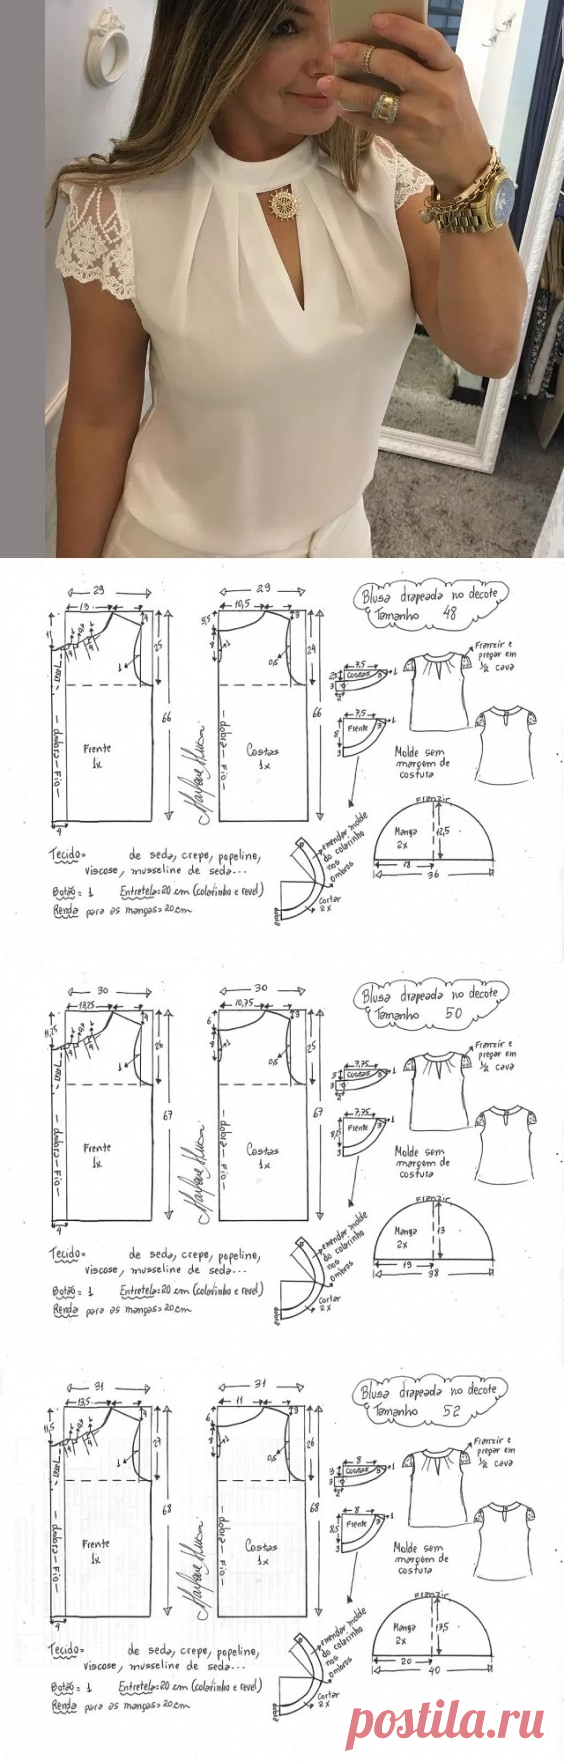 29
13
11
4
25
1
66
4
Frente
1x
dobra - Fio
29
10,5
3,5
3
24
0,5
66
Costas
1x
dobra - Fio
Blusa drapeada no decote
Tamanho 48
Franzir e
prepar em
1/2 cava
7,5
Costas
3
1
7,5
Frente
3
1
Molde sem
margem de
costura
Franzir
Manga
2x
12,5
18
36
emendar molde
do colarinho
nos
ombros
Cortar
2x
dobra
Tecido= de seda, crepe, popeline,
viscose, musseline de seda...
Botão= 1 Entretela=20 cm (colarinho e revel)
Renda para as mangas=20cm
30
13,75
11,25
4
26
1
67
4
Frente
1x
dobra - Fio
30
10,75
6
3
25
0,5
67
Costas
1x
dobra - Fio
Blusa drapeada no decote
Tamanho 50
Franzir e
prepar em
1/2 cava
7,75
Costas
3
1
7,75
Frente
8,25
3
1
Molde sem
margem de
costura
Franzir
Manga
2x
13
19
38
emendar molde
do colarinho
nos
ombros
Cortar
2x
dobra
Tecido= de seda, crepe, popeline,
viscose, musseline de seda...
Botão= 1 Entretela=20 cm (colarinho e revel)
Renda para as mangas=20cm
31
13,5
11,5
4
27
1
68
4
Frente
1x
dobra - Fio
31
11
6
8
3
26
0,5
68
Costas
1x
dobra - Fio
Blusa drapeada no decote
Tamanho 52
Franzir e
prepar em
1/2 cava
8
Costas
3
1
8
Frente
8,5
3
1
Molde sem
margem de
costura
Franzir
Manga
2x
13,5
20
40
emendar molde
do colarinho
nos
ombros
Cortar
2x
dobra
Tecido= de seda, crepe, popeline,
viscose, musseline de seda...
Botão= 1 Entretela=20 cm (colarinho e revel)
Renda para as mangas=20cm
postila.ru